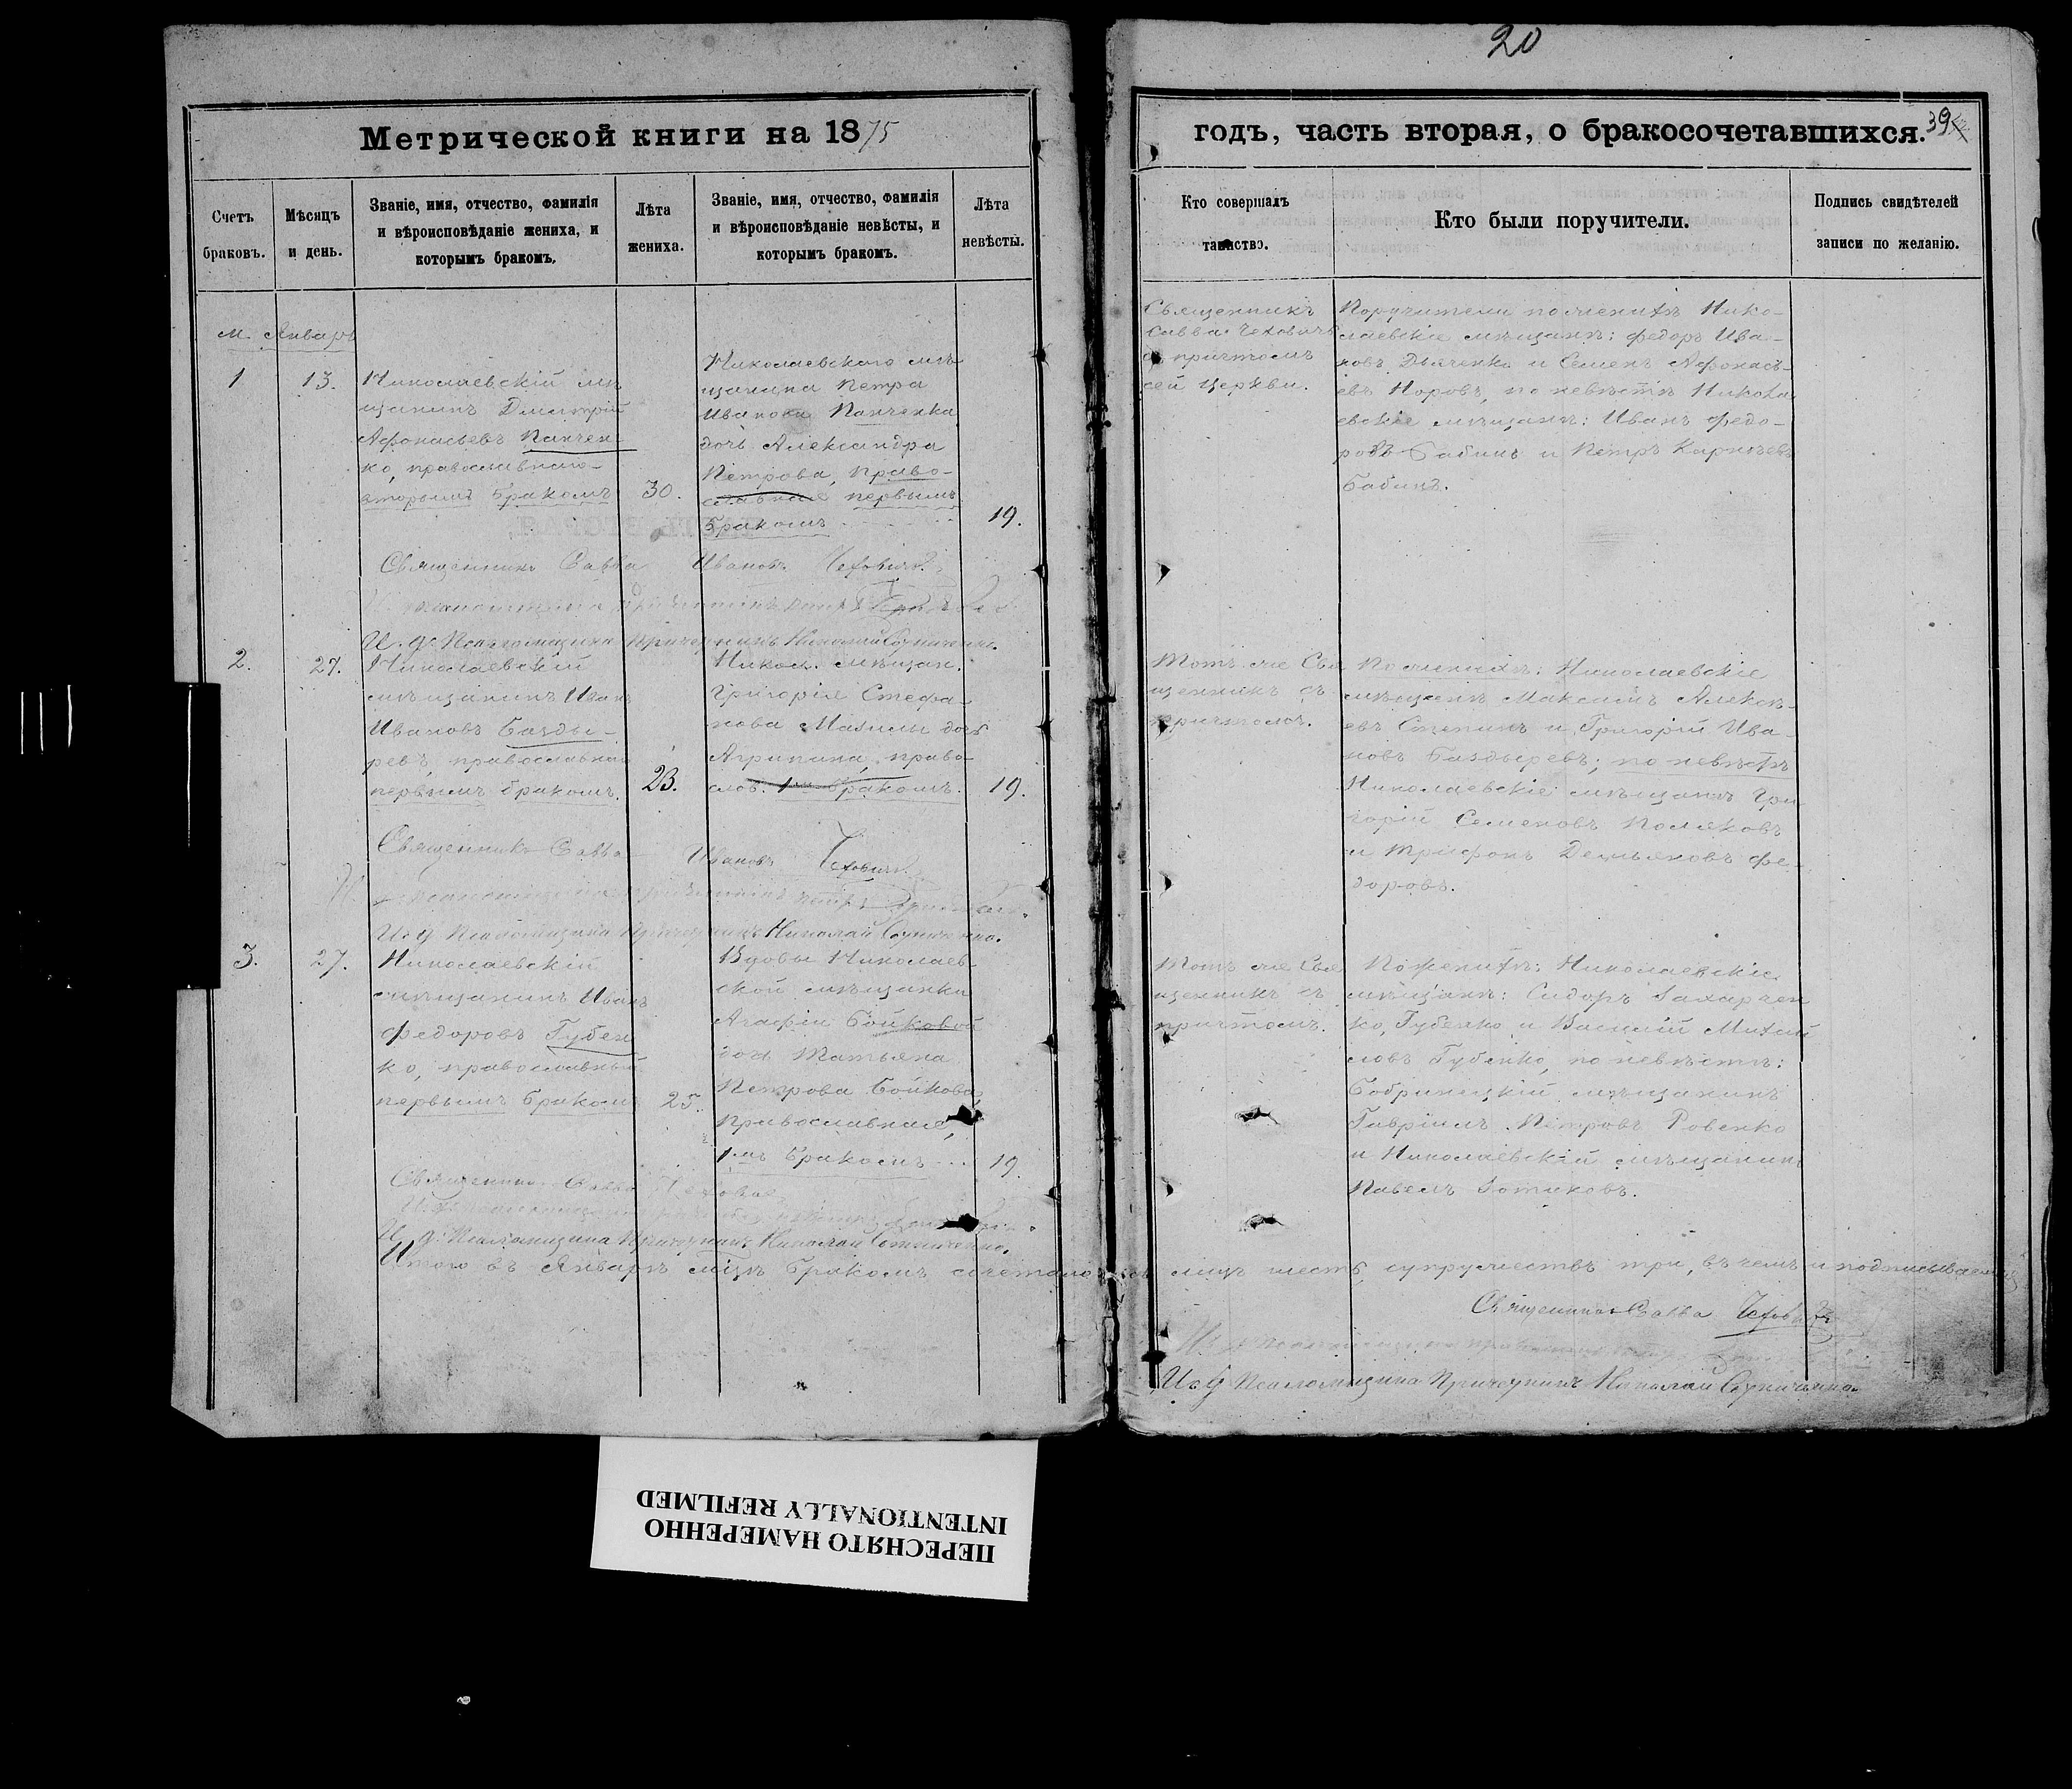 20
Метрической книги на 1875
годъ, часть вторая, о бракосочетавшихся.
39
Счетъ браковъ.
Мѣсяцъ и день.
Званіе, имя, отчество, фамилія
и вѣроисповѣданіе жениха, и
которымъ бракомъ.
Лѣта
жениха.
Званіе, имя, отчество, фамилія
и вѣроисповѣданіе невѣсты, и
которымъ бракомъ.
Лѣта
невѣсты.
Кто совершалъ
таинство.
Кто были поручители.
Подпись свидѣтелей
записи по желанію.
м. Январь
1
13.
Николаевскій мѣ
щанинъ Дмитрій
Афонасьевъ Панчен
ко, православнаго
вторымъ бракомъ
30.
Николаевского мѣ
щанина Петра
Иванова Панченка
дочь Александра
Петрова, право-
славная первымъ
бракомъ
19.
Священникъ
Савва Чеховичъ
съ причтомъ
сей церкви.
Поручители по женихѣ Нико-
лаевскіе мѣщанѣ: Федоръ Ива-
новъ Дьяченко и Семенъ Афонась-
евъ Норовъ, по невѣстѣ Никола
евскіе мѣщанѣ: Иванъ Федо-
ровъ Бабинъ и Петръ
Бабинъ.
Священникъ Савва Ивановъ Чеховичъ
И. д. Псаломщика Причетникъ Николай
2.
27.
Николаевскій
мѣщанинъ Иванъ
Ивановъ Базды-
ревъ, православнаго
первымъ бракомъ.
23.
Никол. мѣщан.
Григорія Стефа-
нова дочь
Агрипина, право-
слов. 1мъ бракомъ.
19.
Тотъ же Свя
щенникъ съ
причтомъ.
По женихѣ: Николаевскіе
мѣщанѣ Максимъ Алексѣ-
евъ и Григорій Ива-
новъ Баздыревъ; по невѣстѣ
Николаевскіе мѣщанѣ Гри
горій Семеновъ Поляковъ
и Трифонъ Демьяновъ Фе-
доровъ.
Священникъ Савва Ивановъ Чеховичъ
И. д. Псаломщика Причетникъ Николай
3.
27.
Николаевскій
мѣщанинъ Иванъ
Федоровъ Губен
ко, православный
первымъ бракомъ
25.
Вдовы Николаев
ской мѣщанки
Агафіи Бойковой
дочь Татьяна
Петрова Бойкова,
православная,
1мъ бракомъ
19
Тотъ же Свя
щенникъ съ
причтомъ.
По женихѣ: Николаевскіе
мѣщанѣ: Сидоръ Захарчен
ко, Губенко и Василій Михай
ловъ Губенко, по невѣстѣ:
Бобринецкій мѣщанинъ
Гавріилъ Петровъ Ровенко
и Николаевскій мѣщанинъ
Павелъ Зотиковъ.
Священникъ Савва Чеховичъ
И. д. Псаломщика Причетникъ Николай
Итого въ Январѣ мѣцѣ бракомъ сочеталось лицъ шесть, супружествъ три, въ чемъ и подписываемся
Священникъ Савва Чеховичъ
И. д. Псаломщика Причетникъ Николай
ПЕРЕСНЯТО НАМЕРЕННО
INTENTIONALLY REFILMED